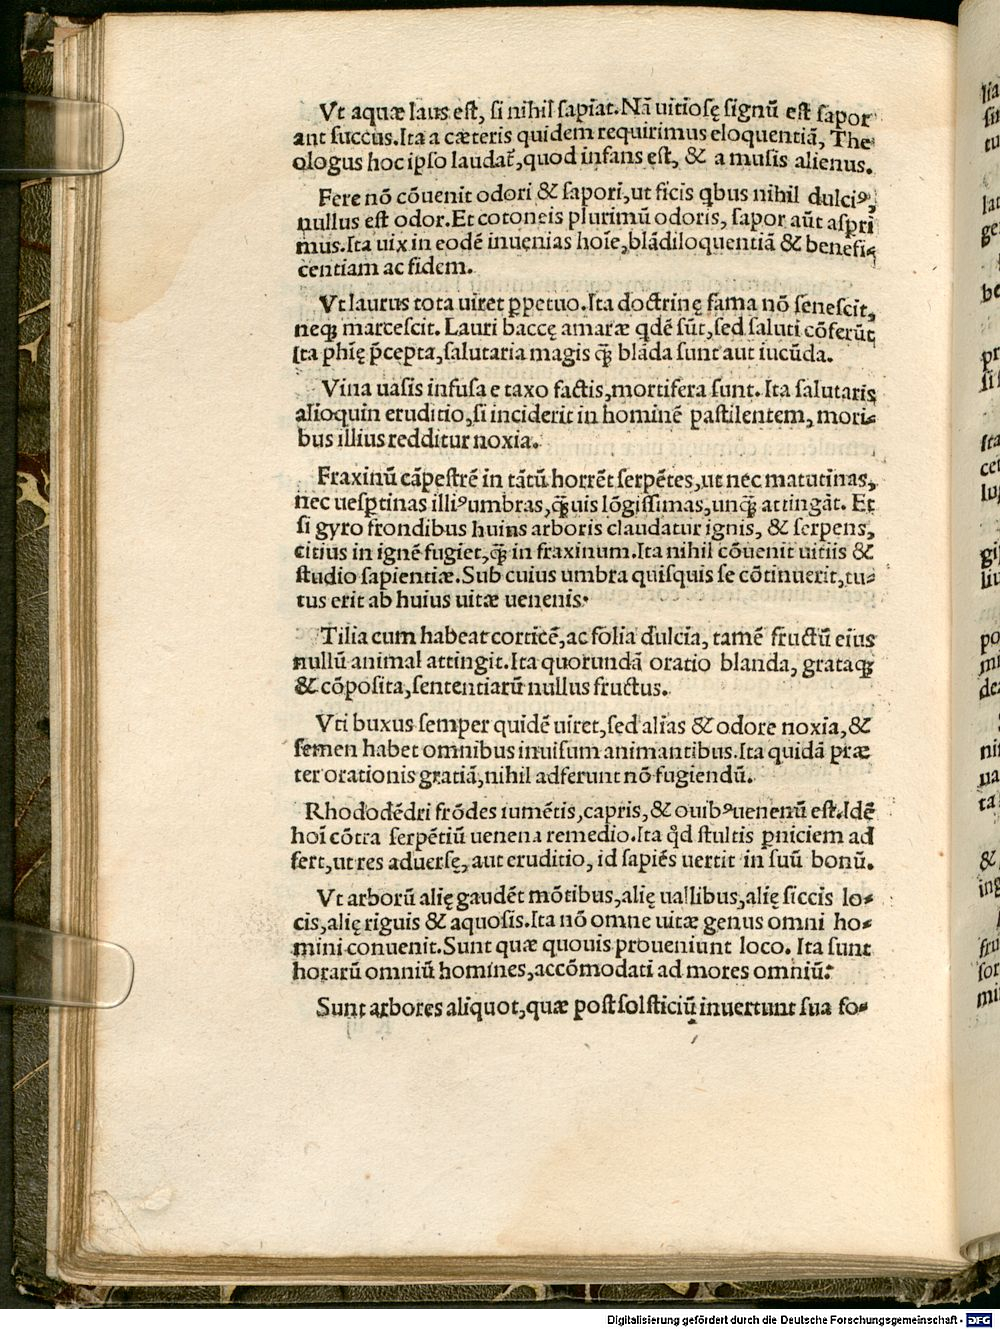 Vt aquæ laus est, si nihil sapiat. Nā uitiosę signū est sapor
ant succus. Ita a cæteris quidem requirimus eloquentiā, The-
ologus hoc ipso laudat̃, quod infans est, & a musis alienus.
Fere nō cōuenit odori & sapori, ut ficis qbus nihil dulciꝰ,
nullus est odor. Et cotoneis plurimū odoris, sapor aūt aspri
mus. Ita uix in eodē inuenias hoīe, blādiloquentiā & benefi-
centiam ac fidem.
Vt laurus tota uiret ꝑpetuo. Ita doctrinę fama nō senescit,
neqꝫ marcescit. Lauri baccę amaræ qdē sūt, sed saluti cōferūt
Ita phīę p̄cepta, salutaria magis q̄ꝫ blāda sunt aut iucūda.
Vina uasis infusa e taxo factis, mortifera sunt. Ita salutaris
alioquin eruditio, si inciderit in hominē pastilentem, mori-
bus illius redditur noxia.
Fraxinū cāpestrē in tātū horrēt serpētes, ut nec matutinas,
nec uesꝑtinas illiꝰ umbras, q̄ꝫuis lōgissimas, unq̄ꝫ attingāt. Et
si gyro frondibus huius arboris claudatur ignis, & serpens,
citius in ignē fugiet, q̄ꝫ in fraxinum. Ita nihil cōuenit uitiis &
studio sapientiæ. Sub cuius umbra quisquis se cōtinuerit, tu-
tus erit ab huius uitæ uenenis.
Tilia cum habeat corticē, ac folia dulcia, tamē fructū eius
nullū animal attingit. Ita quorundā oratio blanda, grataqꝫ
& cōposita, sententiarū nullus fructus.
Vti buxus semper quidē uiret, sed alias & odore noxia, &
semen habet omnibus inuisum animantibus. Ita quidā præ
ter orationis gratiā, nihil adferunt nō fugiendū.
Rhododēdri frōdes iumētis, capris, & ouibꝰ uenenū est. Idē
hoī cōtra serpētiū uenena remedio. Ita qd̄ stultis ꝑniciem ad
fert, ut res aduersę, aut eruditio, id sapiēs uertit in suū bonū.
Vt arborū alię gaudēt mōtibus, alię uallibus, alię siccis lo-
cis, alię riguis & aquosis. Ita nō omne uitæ genus omni ho-
mini conuenit. Sunt quæ quouis proueniunt loco. Ita sunt
horarū omniū homines, accōmodati ad mores omniū.
Sunt arbores aliquot, quæ post solsticiū inuertunt sua fo-
Digitalisierung gefördert durch die Deutsche Forschungsgemeinschaft - DFG